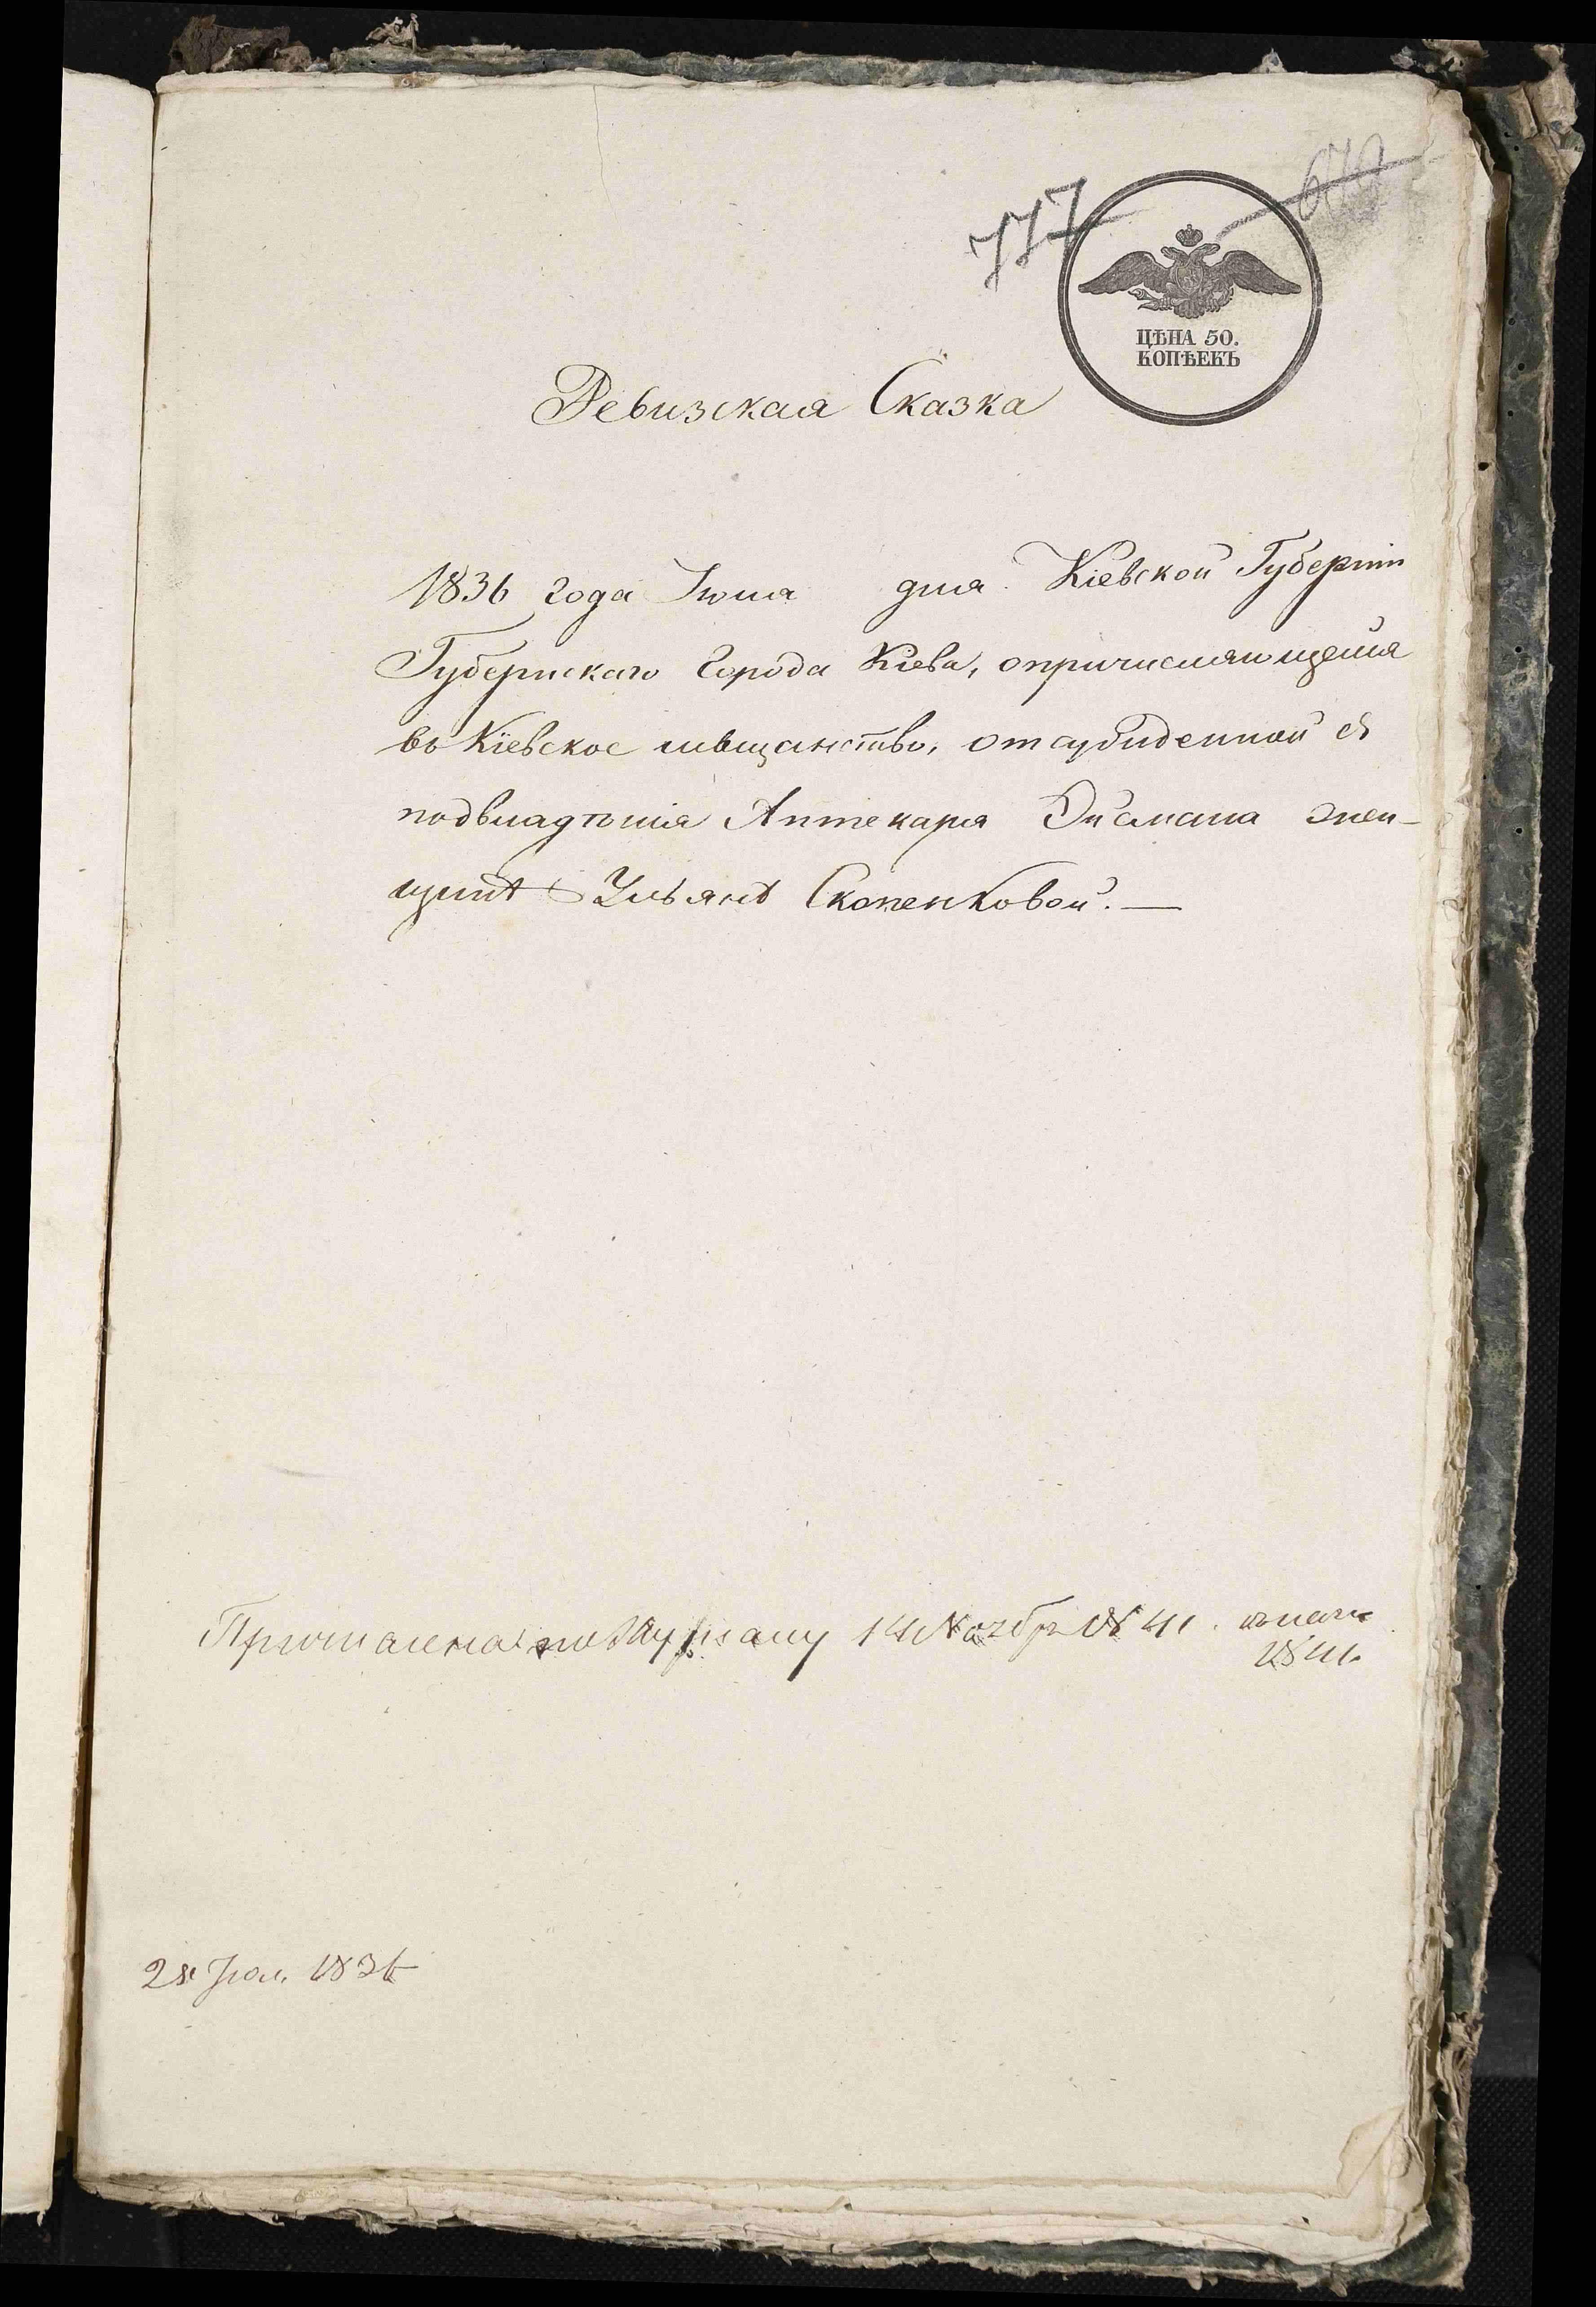 777
ЦѢНА 50.
КОПѢЕКЪ
Ревизская Сказка
1836 года Июля дня Кіевской Губерніи
Губернскаго Города Кіева, опричисляющейся
въ Кіевское мѣщанство, отсужденной съ
подвладѣнія Аптекаря Эйсмана жен-
щинѣ Ульянѣ Скопенковой.—
Причислена по Журналу 14 Ноября 1841.
1841.
28 Июл. 1836